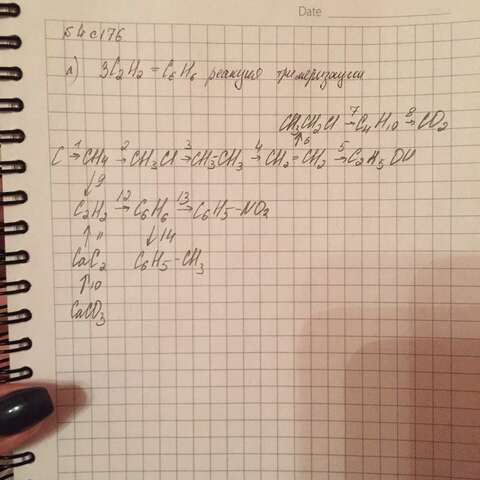 Date
№4 с176
а) 3C2H2 = C6H6 реакция тримеризации
CH3CH2Cl 7→ C4H10 8→ CO2
↑6
C 1→ CH4 2→ CH3Cl 3→ CH3-CH3 4→ CH2=CH2 5→ C2H5OH
↓9
C2H2 12→ C6H6 13→ C6H5-NO2
↑11 ↓14
CaC2 C6H5-CH3
↑10
CaCO3